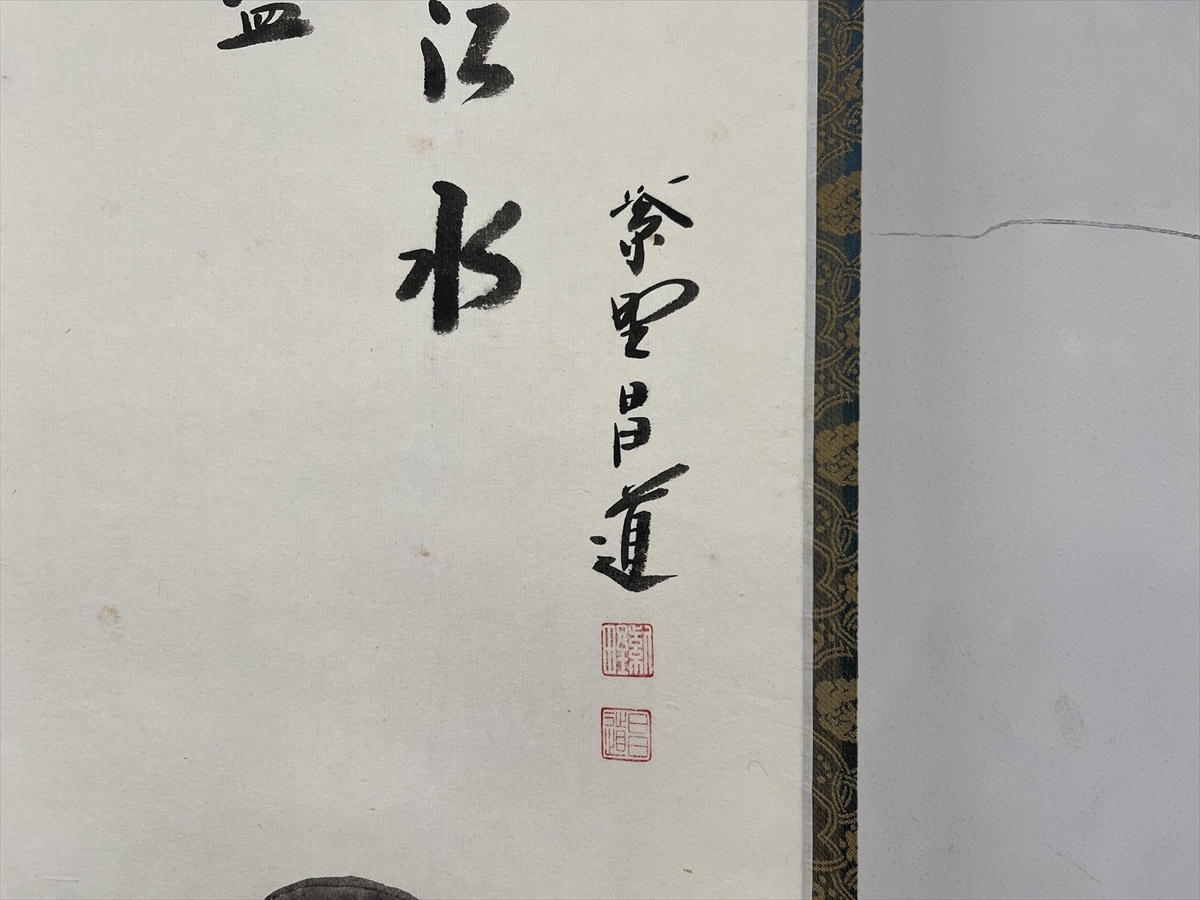 江水
紫野昌道
昌道